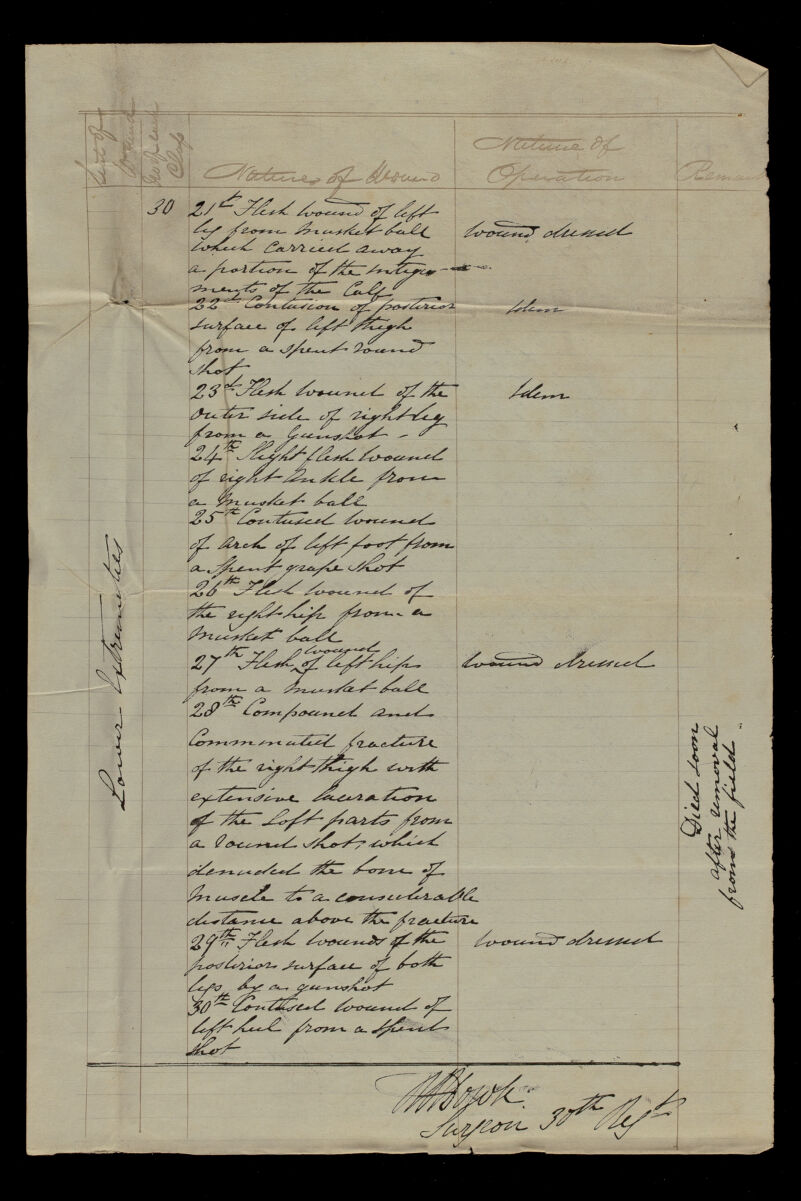 Seat of
Wound
No of each
Class
Natures of Wound
Nature of
Operation
Remark
Lower Extremeties
30
21st Flesh wound of left
leg from Musket ball
which carried away
a portion of the integu-
ments of the Calf
wound dressed
22nd Contusion of posterior
surface of left thigh
from a spent round
shot
Idem
23d Flesh wound of the
outer side of right leg
from a Gunshot -
Idem
24th Slight flesh wound
of right Ankle from
a Musket ball
25th Contused wound
of arch of left foot from
a spent grape shot
26th Flesh wound of
the right hip from a
Musket ball
27th Flesh wound of left hip
from a musket ball
wound dressed
28th Compound and
Comminuted fracture
of the right thigh with
extensive laceration
of the Soft parts from
a round shot, which
denuded the bone of
Muscle to a considerable
distance above the fracture
Died soon
after removal
from the field
29th Flesh wounds of the
posterior surface of both
legs by a gunshot
wound dressed
30th Contused wound of
left heel from a spent
shot
Surgeon 30th Regt